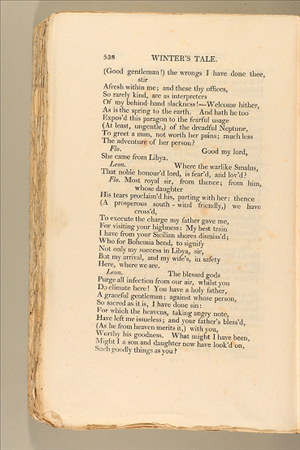 538 WINTER'S TALE.
(Good gentleman!) the wrongs I have done thee,
stir
Afresh within me; and these thy offices,
So rarely kind, are as interpreters
Of my behind-hand slackness!—Welcome hither,
As is the spring to the earth. And hath he too
Expos'd this paragon to the fearful usage
(At least, ungentle,) of the dreadful Neptune,
To greet a man, not worth her pains; much less
The adventure of her person?
Flo. Good my lord,
She came from Libya.
Leon. Where the warlike Smalus,
That noble honour'd lord, is fear'd, and lov'd?
Flo. Most royal sir, from thence; from him,
whose daughter
His tears proclaim'd his, parting with her: thence
(A prosperous south-wind friendly,) we have
cross'd,
To execute the charge my father gave me,
For visiting your highness: My best train
I have from your Sicilian shores dismiss'd;
Who for Bohemia bend, to signify
Not only my success in Libya, sir,
But my arrival, and my wife's, in safety
Here, where we are.
Leon. The blessed gods
Purge all infection from our air, whilst you
Do climate here! You have a holy father,
A graceful gentleman; against whose person,
So sacred as it is, I have done sin:
For which the heavens, taking angry note,
Have left me issueless; and your father's bless'd,
(As he from heaven merits it,) with you,
Worthy his goodness. What might I have been,
Might I a son and daughter now have look'd on,
Such goodly things as you?